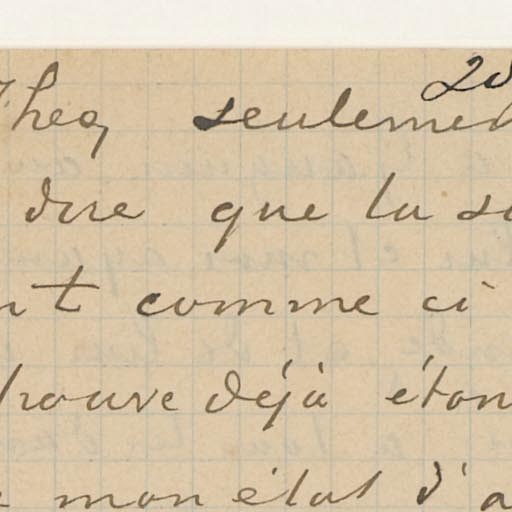 Theo, seulemen
dire que la so
nt comme ci
trouve déjà éton
mon état d'a